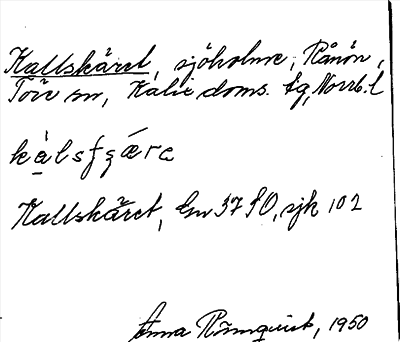 Kallskäret, sjöholme, Rånön,
Töre sn, Kalix doms. tg, Norrb. l
kàlsfʒǽrɛ
Kallskäret, Gn 37 SO, sjk 102
Anna Römquist, 1950